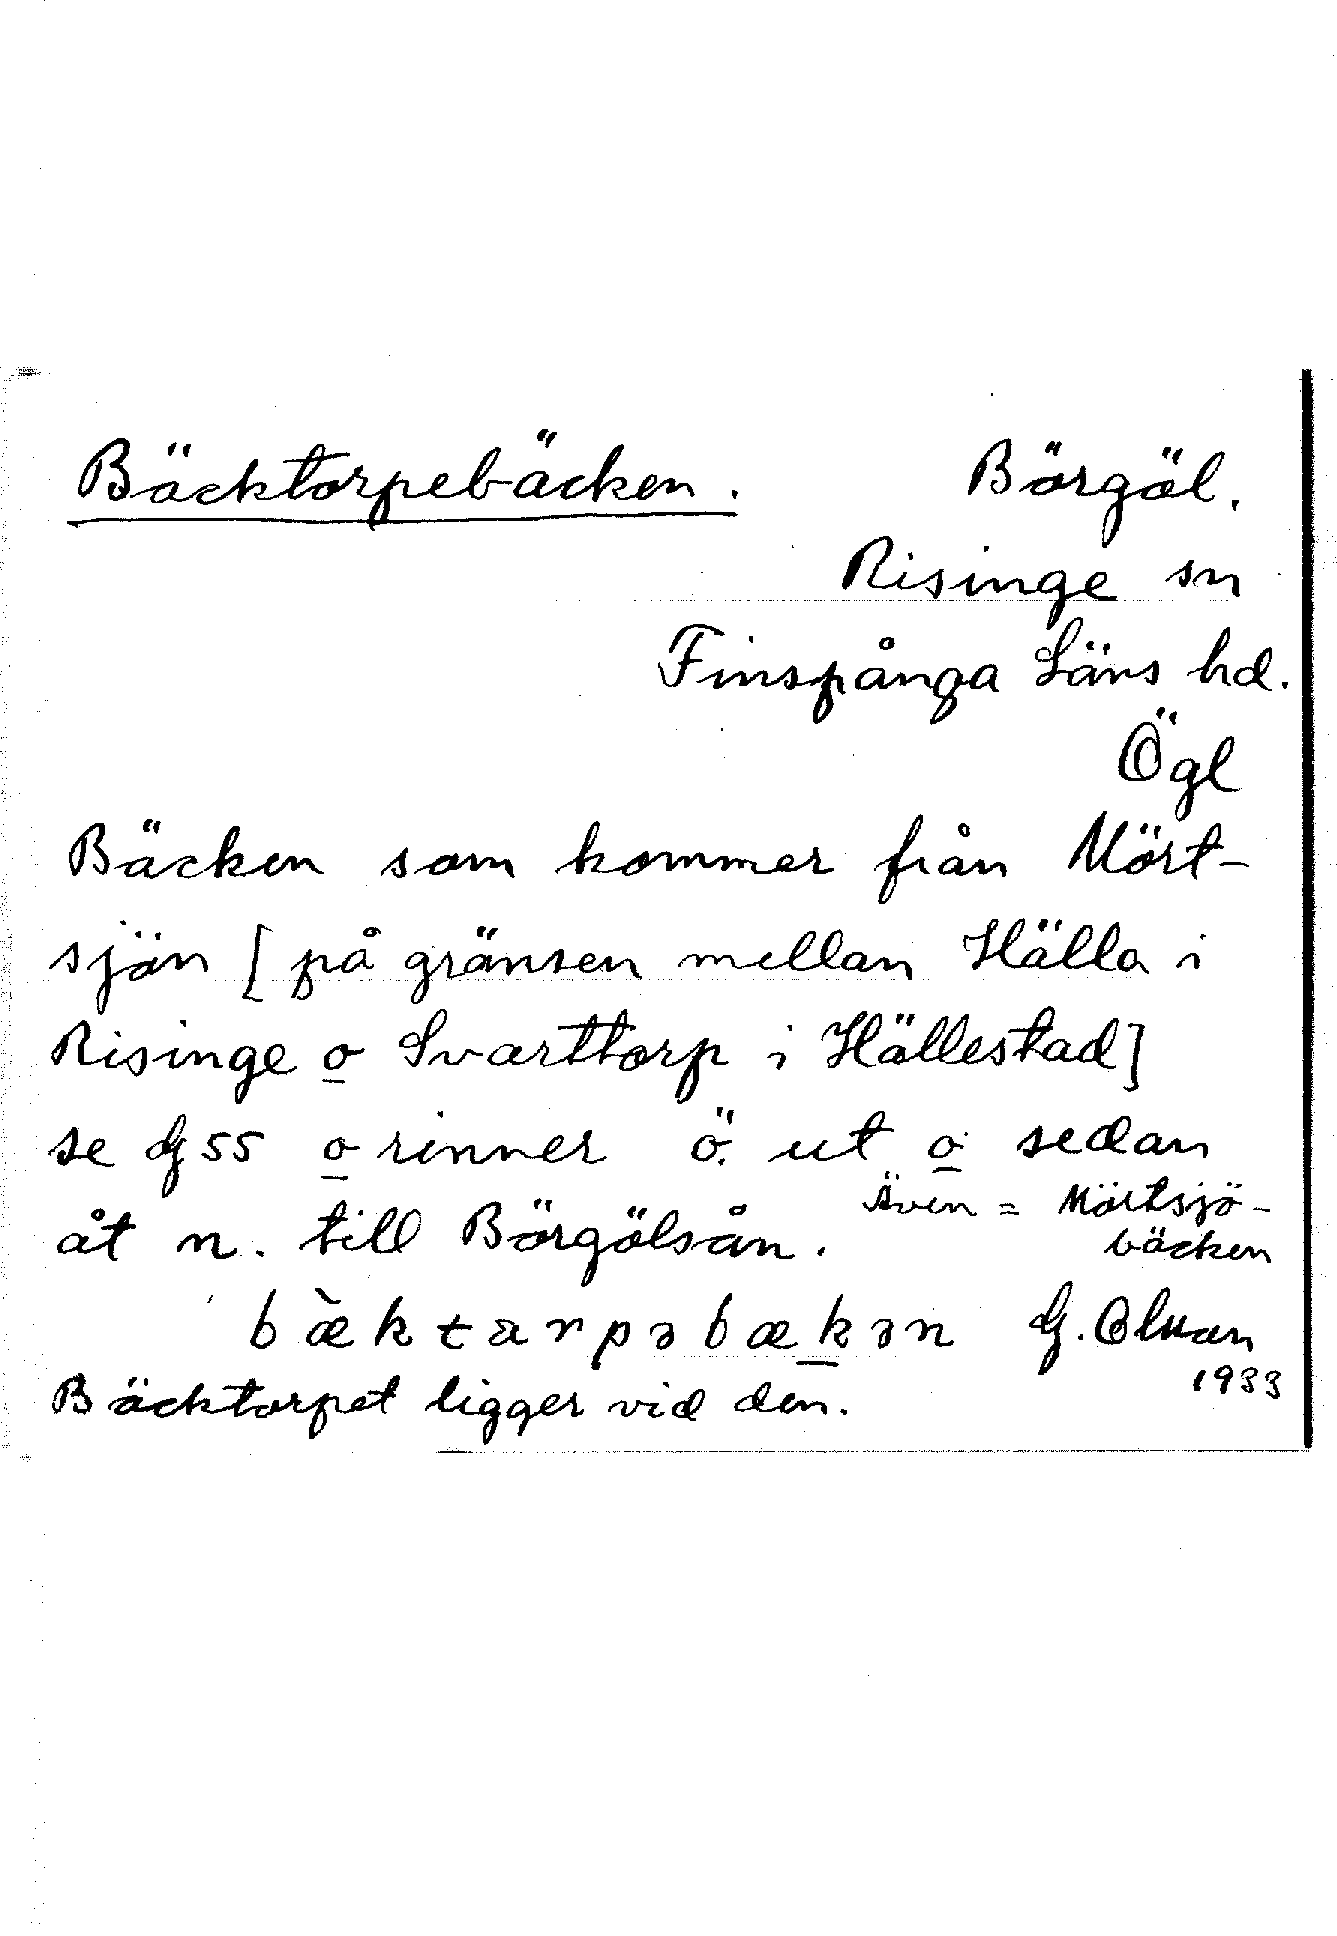 Bäcktorpebäcken. Börgöl.
Risinge sn
Finspånga Läns hd.
Ögl
Bäcken som kommer från Mört-
sjön [på gränsen mellan Hälla i
Risinge o Svarttorp i Hällestad]
se G55 o rinner ö. ut o sedan
åt n. till Börgölsån. Även = Mörtsjö-
bäcken
bæ̀ktarpəbækən G.
1933
Bäcktorpet ligger vid den.